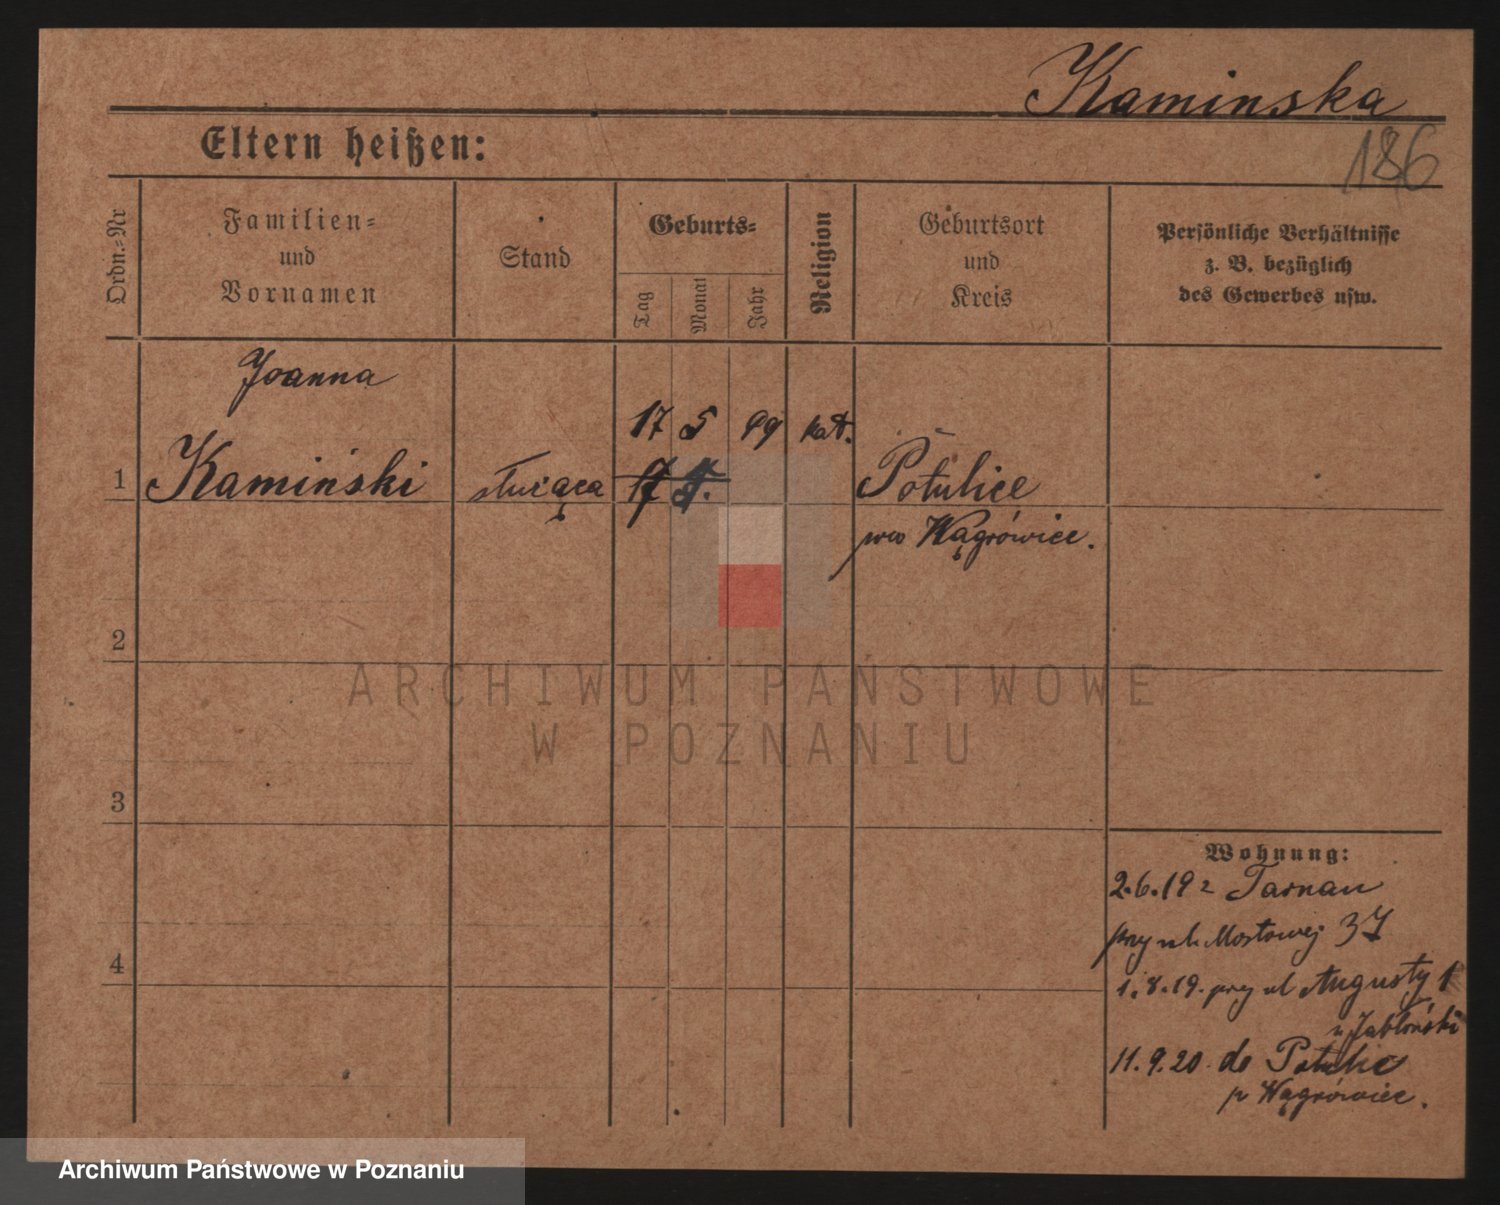 Kaminska
186
Eltern heißen:
Ordn.-Nr
Familien-
und
Vornamen
Stand
Geburts-
Tag
Monat
Jahr
Religion
Geburtsort
und
Kreis
Persönliche Verhältnisse
z. B. bezüglich
des Gewerbes usw.
Joanna
17 5 99 kat.
1 Kamiński służąca 17 Potulice
pow Wągrówiec.
2
3
4
Wohnung:
2.6.19 z Tarnau
przy ul. Mostowej 37
1.8.19. przy ul Augusty 1
u Jabłoński
11.9.20. do Potulic
p Wągrówiec.
ARCHIWUM PAŃSTWOWE
W POZNANIU
Archiwum Państwowe w Poznaniu